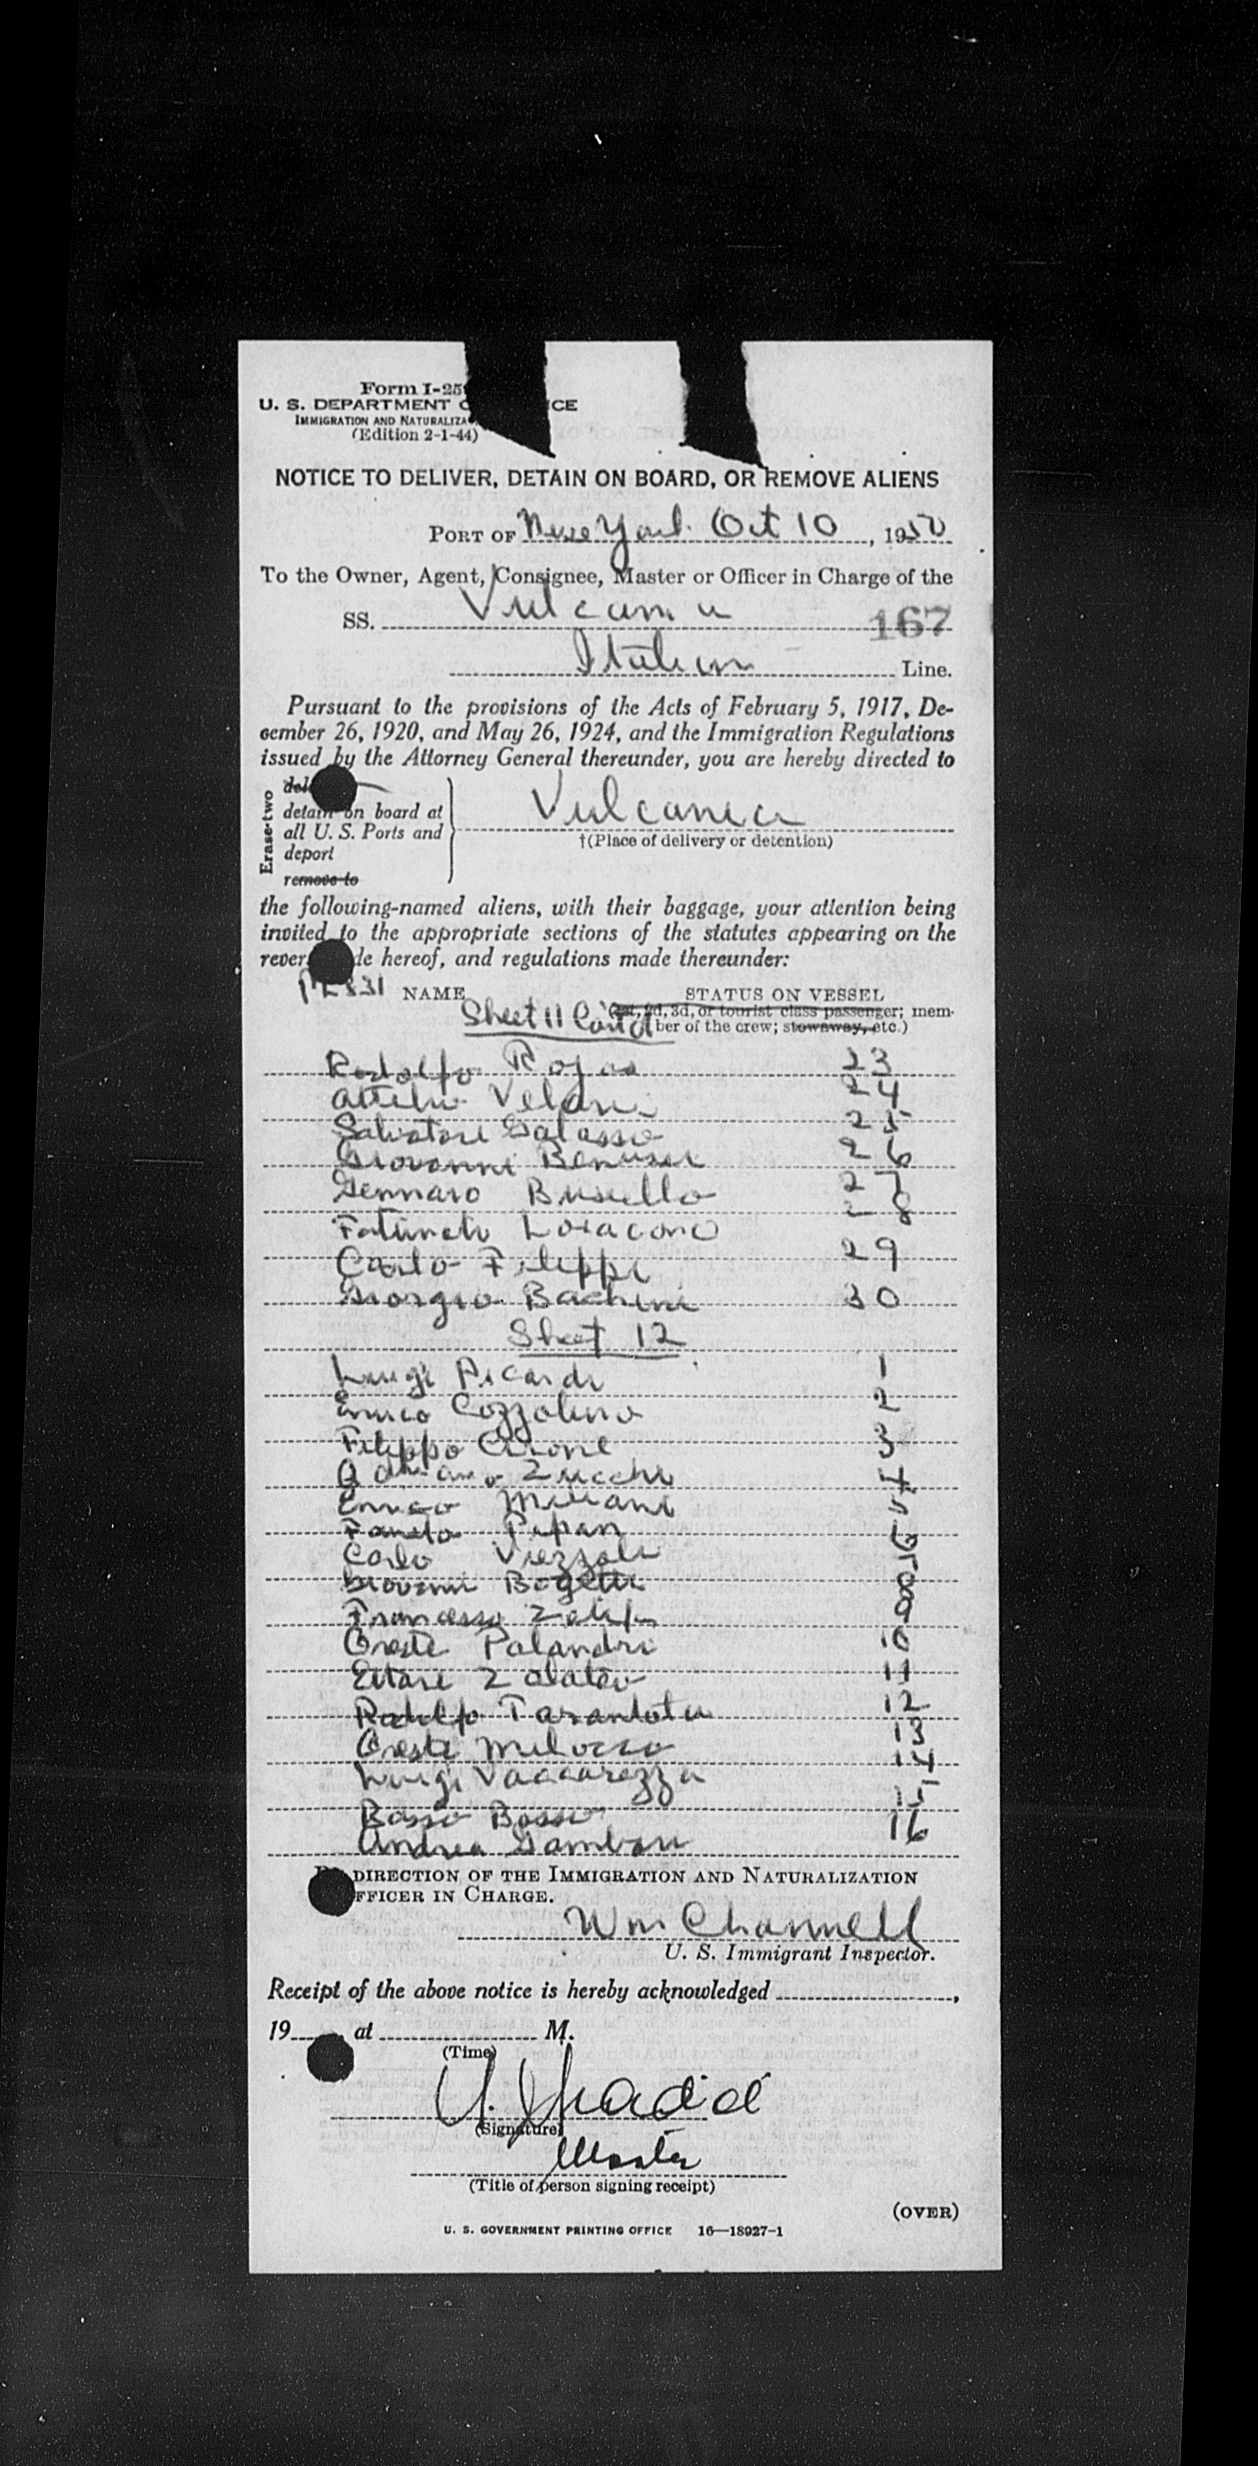 Form I-25
U. S. DEPARTMENT O ICE
IMMIGRATION AND NATURALIZA
(Edition 2-1-44)
NOTICE TO DELIVER, DETAIN ON BOARD, OR REMOVE ALIENS
PORT OF New York Oct 10, 1950
To the Owner, Agent, Consignee, Master or Officer in Charge of the
SS. Vulcania 167
Italian Line.
Pursuant to the provisions of the Acts of February 5, 1917, De-
cember 26, 1920, and May 26, 1924, and the Immigration Regulations
issued by the Attorney General thereunder, you are hereby directed to
Erase two
del
detain on board at
all U. S. Ports and
deport
remove to
Vulcania
†(Place of delivery or detention)
the following-named aliens, with their baggage, your attention being
invited to the appropriate sections of the statutes appearing on the
rever de hereof, and regulations made thereunder:
NAME STATUS ON VESSEL
Sheet 11 Cont'd (1st, 2d, 3d, or tourist class passenger; mem-
ber of the crew; stowaway, etc.)
Rodolfo Rojas 23
Attilio Velani 24
Salvatore Galasso 25
Giovanni Benussi 26
Gennaro Busiello 27
Fortunato Loiacono 28
Carlo Filippi 29
Giorgio Bachini 30
Sheet 12
Luigi Picardi 1
Enrico Cozzolino 2
Filippo Cirone 3
Zucchi 4
Enrico Miliani 5
Pipan 6
Carlo Viezzoli
Giovanni Bogetti 8
Francesco 9
Oreste Palandri 10
Ettore Zalateo 11
Rodolfo Tarantola 12
Oreste Milocco 13
Luigi Vaccarezza 14
Basso Basso 15
Andrea Gambari 16
DIRECTION OF THE IMMIGRATION AND NATURALIZATION
FFICER IN CHARGE.
Wm Channell
U. S. Immigrant Inspector.
Receipt of the above notice is hereby acknowledged ,
19 , at M.
(Time)
(Signature)
Master
(Title of person signing receipt)
(OVER)
U. S. GOVERNMENT PRINTING OFFICE 16—18927-1